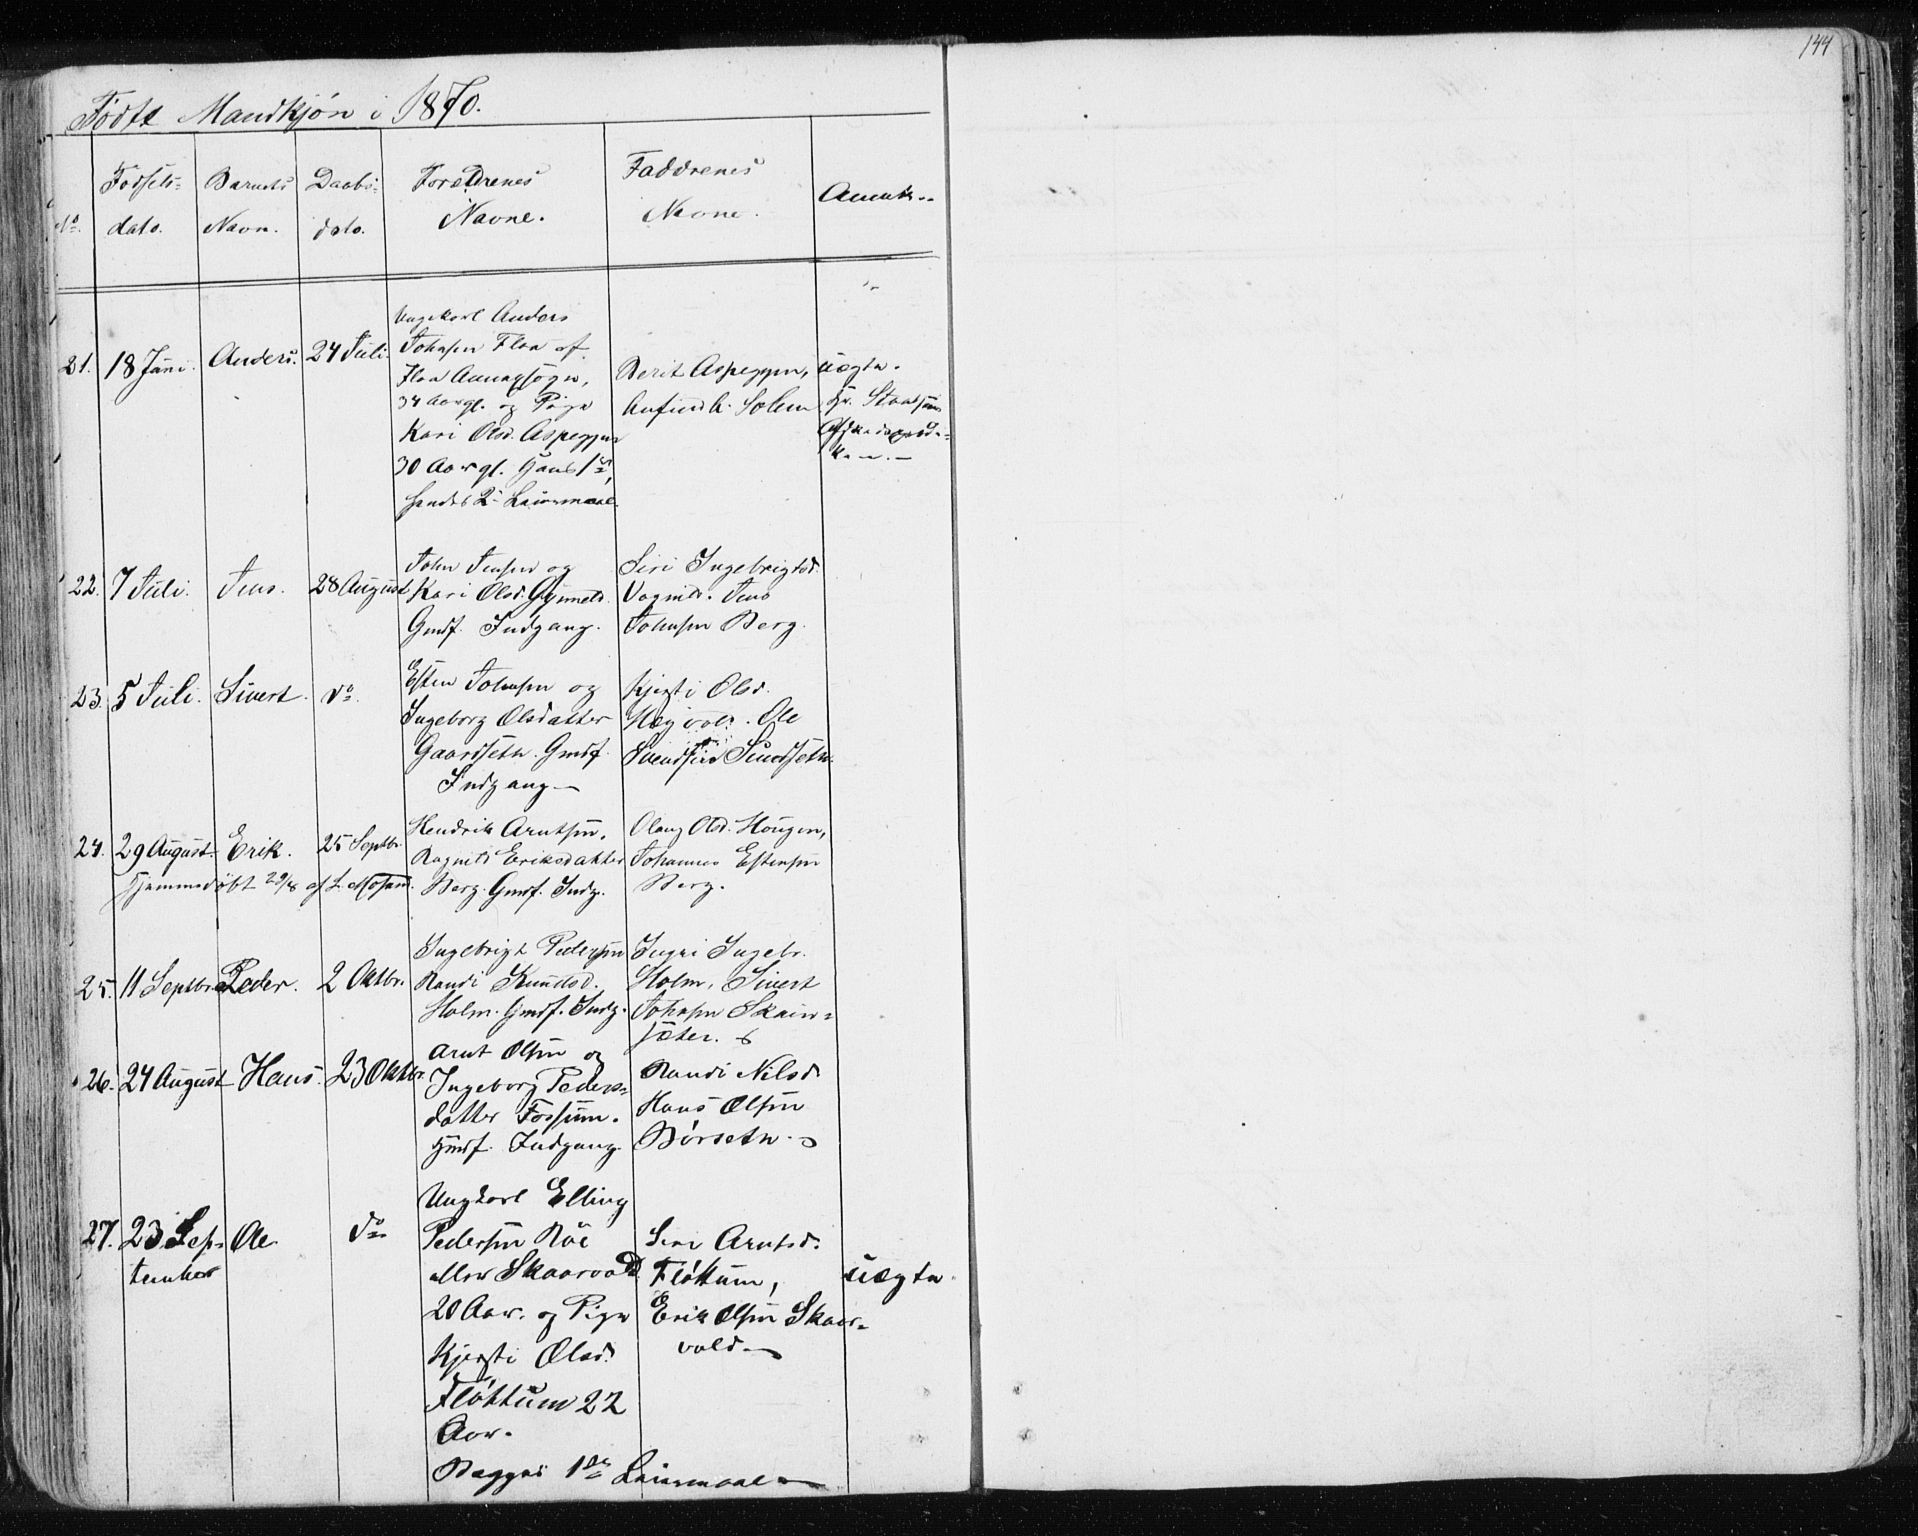 144
Fødte Mandkjøn i 1870.
No. Fødsels- dato. Barnets Navn. Daabs- dato. Forældrenes Navne. Faddrenes Navne. Anmk.
21. 18 Juni. Anders. 24 Juli.
Ungekarl Anders
Johnsen Flaa af
Flaa Annexsogn,
34 Aar gl. og Pige
Kari Olsd. Aspeggen
30 Aar gl. Hans 1ste,
hendes 2. Leiermaal.
Berit Aspeggen,
Anfind A. Solem
uægte.
22. 7 Juli. Jens. 28 August
John Jensen og
Kari Olsd.
Gmdf. Indgang.
Siri Ingebrigtsd.
Vognild. Jens
Johnsen Berg.
23. 5 Juli. Sivert. do.
Esten Johnsen og
Ingeborg Olsdatter
Gaardsetn. Gmdf.
Indgang—
Kjersti Olsd.
Ole
Svendsen
24. 29 August. Erik. 25 Septbr.
Hjemmedøbt 29/8 af L. Mosand.
Hendrik Arntsen.
Ragnild Eriksdatter
Berg. Gmdf. Indg.
Olaug Olsd. Hougen,
Johannes Estensen
Berg.
25. 11 Septbr. Peder. 2 Oktbr.
Ingebrigt Pedersen
Randi Knudsd.
Holm. Gmdf. Indg.
Ingri Ingebr.
Holm, Sivert
Johnsen Skain-
sæter.
26. 24 August Hans. 23 Oktbr.
Arnt Olsen og
Ingeborg Peders-
datter Fossum.
Gmdf. Indgang.
Randi Nilsd.
Hans Olsen
Børsetn.
27. 23 Sep- Ole do
tember
Ungkarl Elling
Pedersen Røe
eller Skaarvold
20 Aar. og Pige
Kjersti Olsd.
Fløttum 22
Aar.
Begges 1ste Leiermaal—
Siri Arntsd.
Fløttum,
Erik Olsen Skaar-
vold.—
uægte.